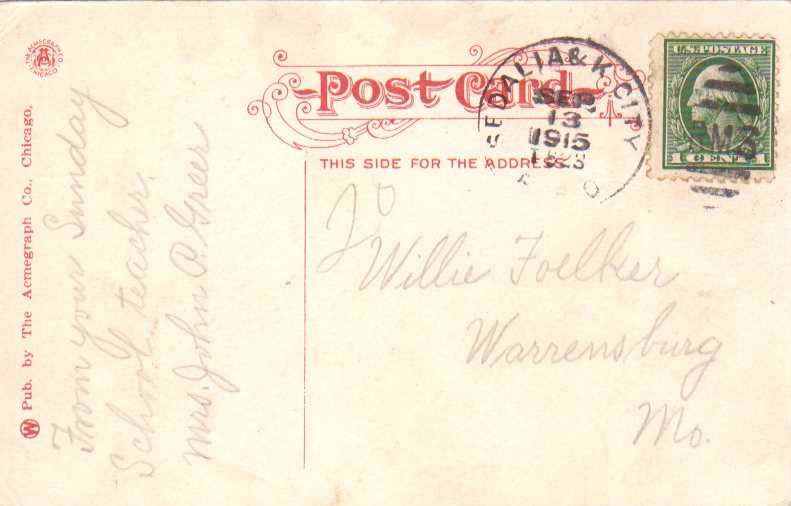 THE ACMEGRAPH CO.
CHICAGO
Post Card
THIS SIDE FOR THE ADDRESS
SEDALIA & K. CITY
SEP
13
1915
U.S. POSTAGE
1 CENT 1
To
Willie Foelker
Warrensburg
Mo.
From your Sunday
School teacher.
Mrs. John P. Greer
W Pub. by The Acmegraph Co., Chicago.